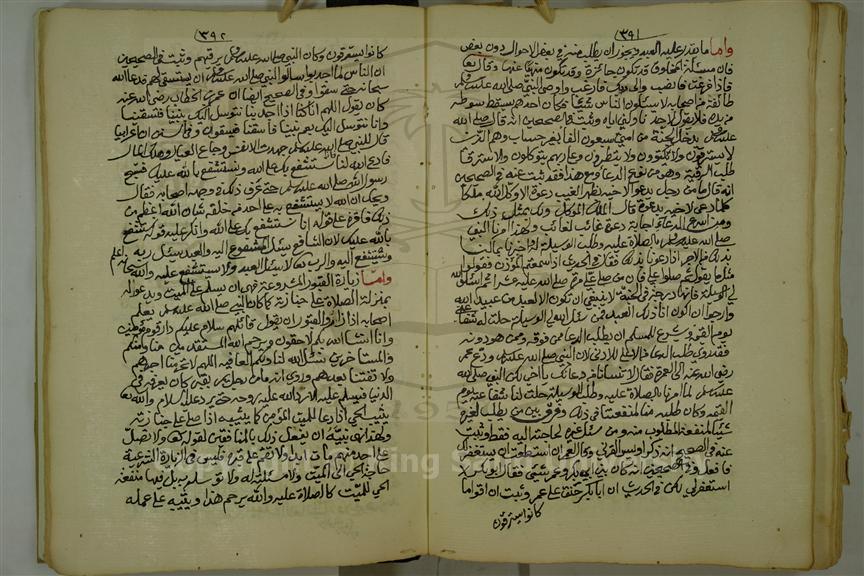 ٣٩١
واما ما يقدر عليه العبد فيجوز ان يطلب منه في بعض الاحوال دون بعض
فان مسئلة المخلوق قد تكون جائزة وقد تكون منهيا عنها وقال تعالى
فاذا فرغت فانصب والى ربك فارغب واوصى النبي صلى الله عليه وسلم
طائفة من اصحابه لا يسئلون الناس شيئا فكان احدهم يسقط سوطه
من يده فلا يقول لاحد ناولني اياه وثبت في الصحيحين انه قال صلى الله
عليه وسلم يدخل الجنة من امتي سبعون الفا بغير حساب وهم الذين
لا يسترقون ولا يكتوون ولا يتطيرون وعلى ربهم يتوكلون والاسترقاء
طلب الرقية وهو من نوع الدعاء ومع هذا فقد ثبت عنه في الصحيحين
انه قال ما من رجل يدعو لاخيه بظهر الغيب دعوة الا وكل الله ملكا
كلما دعى لاخيه بدعوة قال الملك الموكل ولك بمثل ذلك
ومن اسرع الدعاء اجابة دعوة غائب لغائب ولهذا امرنا النبي
صلى الله عليه وسلم بالصلاة عليه وطلب الوسيلة له واخبرنا بما لنا
بذلك من الاجر اذا دعونا بذلك فقال في الحديث اذا سمعتم المؤذن فقولوا
مثل ما يقول ثم صلوا علي فان من صلى علي مرة صلى الله عليه عشرا ثم اسئلوا الله
لي الوسيلة فانها درجة في الجنة لا ينبغي ان تكون الا لعبد من عبيد الله
وارجوا ان اكون انا ذلك العبد فمن سئل الله لي الوسيلة حلت له شفاعتي
يوم القيمة ويشرع للمسلم ان يطلب الدعاء من فوقه وممن هو دونه
فقد روي طلب الدعاء من الاعلى للادنى لان النبي صلى الله عليه وسلم ودع عمر
رضي الله عنه الى العمرة فقال لا تنسانا من دعائك يا اخي لكن النبي صلى الله
عليه وسلم لما امرنا بالصلاة عليه وطلب الوسيلة حلت لنا شفاعته يوم
القيمة وكان طلبه منا لمنفعتنا في ذلك وفرق بين من يطلب لغيره
شيئا لمنفعة المطلوب منه ومن يسئل غيره لحاجته اليه فقط وثبت
عنه في الصحيح انه ذكر اويس القرني وقال لعمر ان استطعت ان يستغفر لك
فافعل وفي الصحيحين انه كان بين ابي بكر وعمر شيئ فقال ابو بكر لا
استغفر لي لكن في الحديث ان ابا بكر حنق على عمر وثبت ان اقواما
كانوا يسترقون
٣٩٢
كانوا يسترقون وكان النبي صلى الله عليه وسلم يرقيهم وثبت في الصحيحين
ان الناس لما اجدبوا سالوا النبي صلى الله عليه وسلم ان يستسقي لهم فدعا الله
سبحانه حتى سقوا وفي الصحيح ايضا ان عمر بن الخطاب رضي الله عنه
كان يقول اللهم انا كنا اذا اجدبنا نتوسل اليك بنبينا فتسقينا
وانا نتوسل اليك بعم نبينا فاسقنا فيسقون وفي السنن ان اعرابيا
قال للنبي صلى الله عليه وسلم جهدت الانفس وجاع العيال وهلك المال
فادع الله لنا نستشفع بك على الله ونستشفع بالله عليك فسبح
رسول الله صلى الله عليه وسلم حتى عرف ذلك في وجه اصحابه فقال
ويحك ان الله لا يستشفع به على احد من خلقه شان الله اعظم من
ذلك فاقره على قوله انا نستشفع بك على الله وانكر عليه قوله نستشفع
بالله عليك لان الشافع يسئل المشفوع اليه والعبد يسئل ربه
ويستشفع اليه والرب سبحانه لا يسئل العبد ولا يستشفع عليه والله تعالى اعلم
واما زيارة القبور المشروعة فهي ان يسلم على الميت ويدعو له
بمنزلة الصلاة على جنازته كما كان النبي صلى الله عليه وسلم يعلم
اصحابه اذا زاروا القبور ان يقول قائلهم سلام عليكم دار قوم مؤمنين
وانا انشاء الله بكم لاحقون ويرحم الله المستقدمين منا ومنكم
والمستاخرين نسئل الله لنا ولكم العافية اللهم لا تحرمنا اجرهم
ولا تفتنا بعدهم وروي انه ما من رجل يمر بقبر كان يعرفه في
الدنيا فيسلم عليه الا رد الله عليه روحه حتى يرد عليه السلام والله تعالى
يثيب الحي اذا دعا للميت المؤمن كما يثيبه اذا صلى على جنازته
ولهذا نهى نبيه ان يفعل ذلك بالمنافقين لقوله تعالى ولا تصل
على احد منهم مات ابدا ولا تقم على قبره فليس في الزيارة الشرعية
حاجة الحي الى الميت ولا مسئلة له ولا توسل به بل فيها منفعة
الحي للميت كالصلاة عليه والله يرحم هذا ويثيبه على عمله